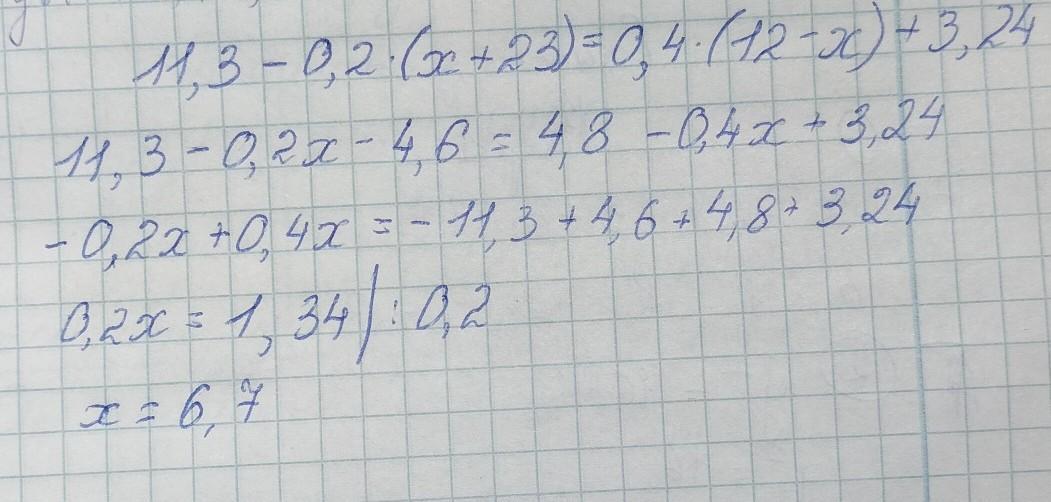 11,3 - 0,2·(x+23)=0,4·(12-x)+3,24
11,3 - 0,2x - 4,6 = 4,8 - 0,4x + 3,24
-0,2x+0,4x = -11,3+4,6+4,8+3,24
0,2x = 1,34 |:0,2
x = 6,7